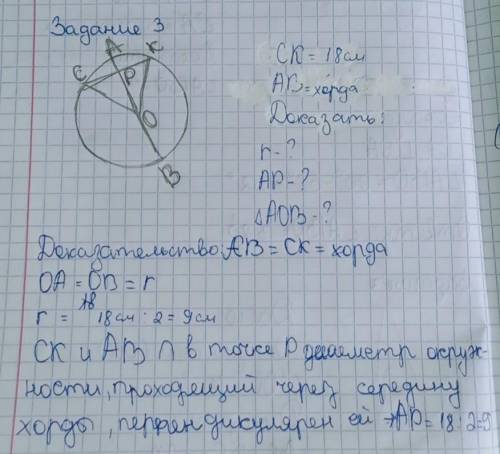 Задание 3
А К
С Р
О
В
СК = 18 см
АВ = хорда
Доказать:
r - ?
АР - ?
△АОВ - ?
Доказательство: АВ = СК = хорда
ОА = ОВ = r
r = АВ 18 см : 2 = 9 см
СК и АВ ∩ в точке Р диаметр окруж-
ности, проходящий через середину
хорды, перпендикулярен ей → АР = 18 : 2 = 9